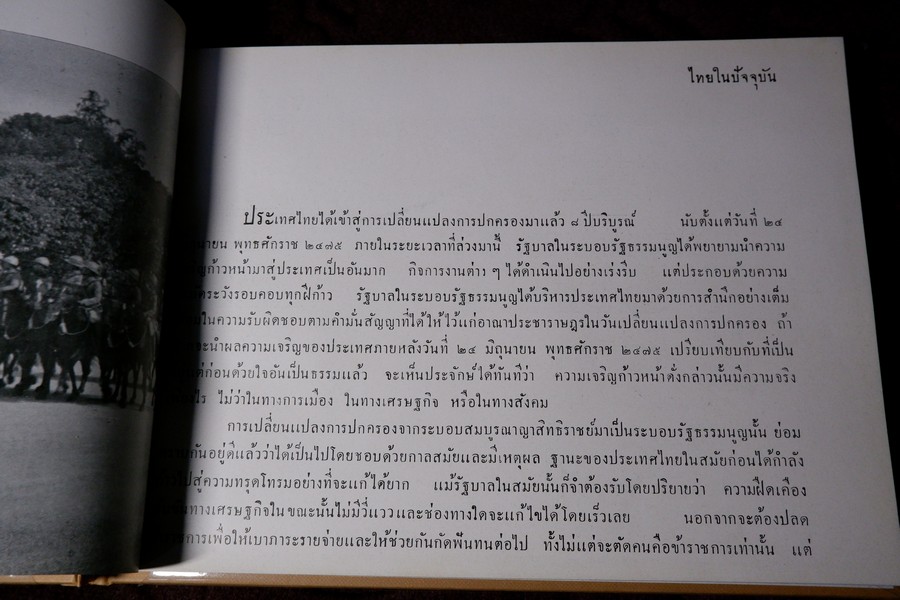 ไทยในปัจจุบัน
ประเทศไทยได้เข้าสู่การเปลี่ยนแปลงการปกครองมาแล้ว ๘ ปีบริบูรณ์ นับตั้งแต่วันที่ ๒๔
นายน พุทธศักราช ๒๔๗๕ ภายในระยะเวลาที่ล่วงมานี้ รัฐบาลในระบอบรัฐธรรมนูญได้พยายามนำความ
ก้าวหน้ามาสู่ประเทศเป็นอันมาก กิจการงานต่าง ๆ ได้ดำเนินไปอย่างเร่งรีบ แต่ประกอบด้วยความ
ระวังรอบคอบทุกฝีก้าว รัฐบาลในระบอบรัฐธรรมนูญได้บริหารประเทศไทยมาด้วยการสำนึกอย่างเต็ม
ในความรับผิดชอบตามคำมั่นสัญญาที่ได้ให้ไว้แก่อาณาประชาราษฎรในวันเปลี่ยนแปลงการปกครอง ถ้า
จะนำผลความเจริญของประเทศภายหลังวันที่ ๒๔ มิถุนายน พุทธศักราช ๒๔๗๕ เปรียบเทียบกับที่เป็น
แต่ก่อนด้วยใจอันเป็นธรรมแล้ว จะเห็นประจักษ์ได้ทันทีว่า ความเจริญก้าวหน้าดั่งกล่าวนั้นมีความจริง
ไร ไม่ว่าในทางการเมือง ในทางเศรษฐกิจ หรือในทางสังคม
การเปลี่ยนแปลงการปกครองจากระบอบสมบูรณาญาสิทธิราชย์มาเป็นระบอบรัฐธรรมนูญนั้น ย่อม
กันอยู่ดีแล้วว่าได้เป็นไปโดยชอบด้วยกาลสมัยและมีเหตุผล ฐานะของประเทศไทยในสมัยก่อนได้กำลัง
ไปสู่ความทรุดโทรมอย่างที่จะแก้ได้ยาก แม้รัฐบาลในสมัยนั้นก็จำต้องรับโดยปริยายว่า ความฝืดเคือง
ทางเศรษฐกิจในขณะนั้นไม่มีวี่แววและช่องทางใดจะแก้ไขได้โดยเร็วเลย นอกจากจะต้องปลด
การเพื่อให้เบาภาระรายจ่ายและให้ช่วยกันกัดฟันทนต่อไป ทั้งไม่แต่จะตัดคนคือข้าราชการเท่านั้น แต่